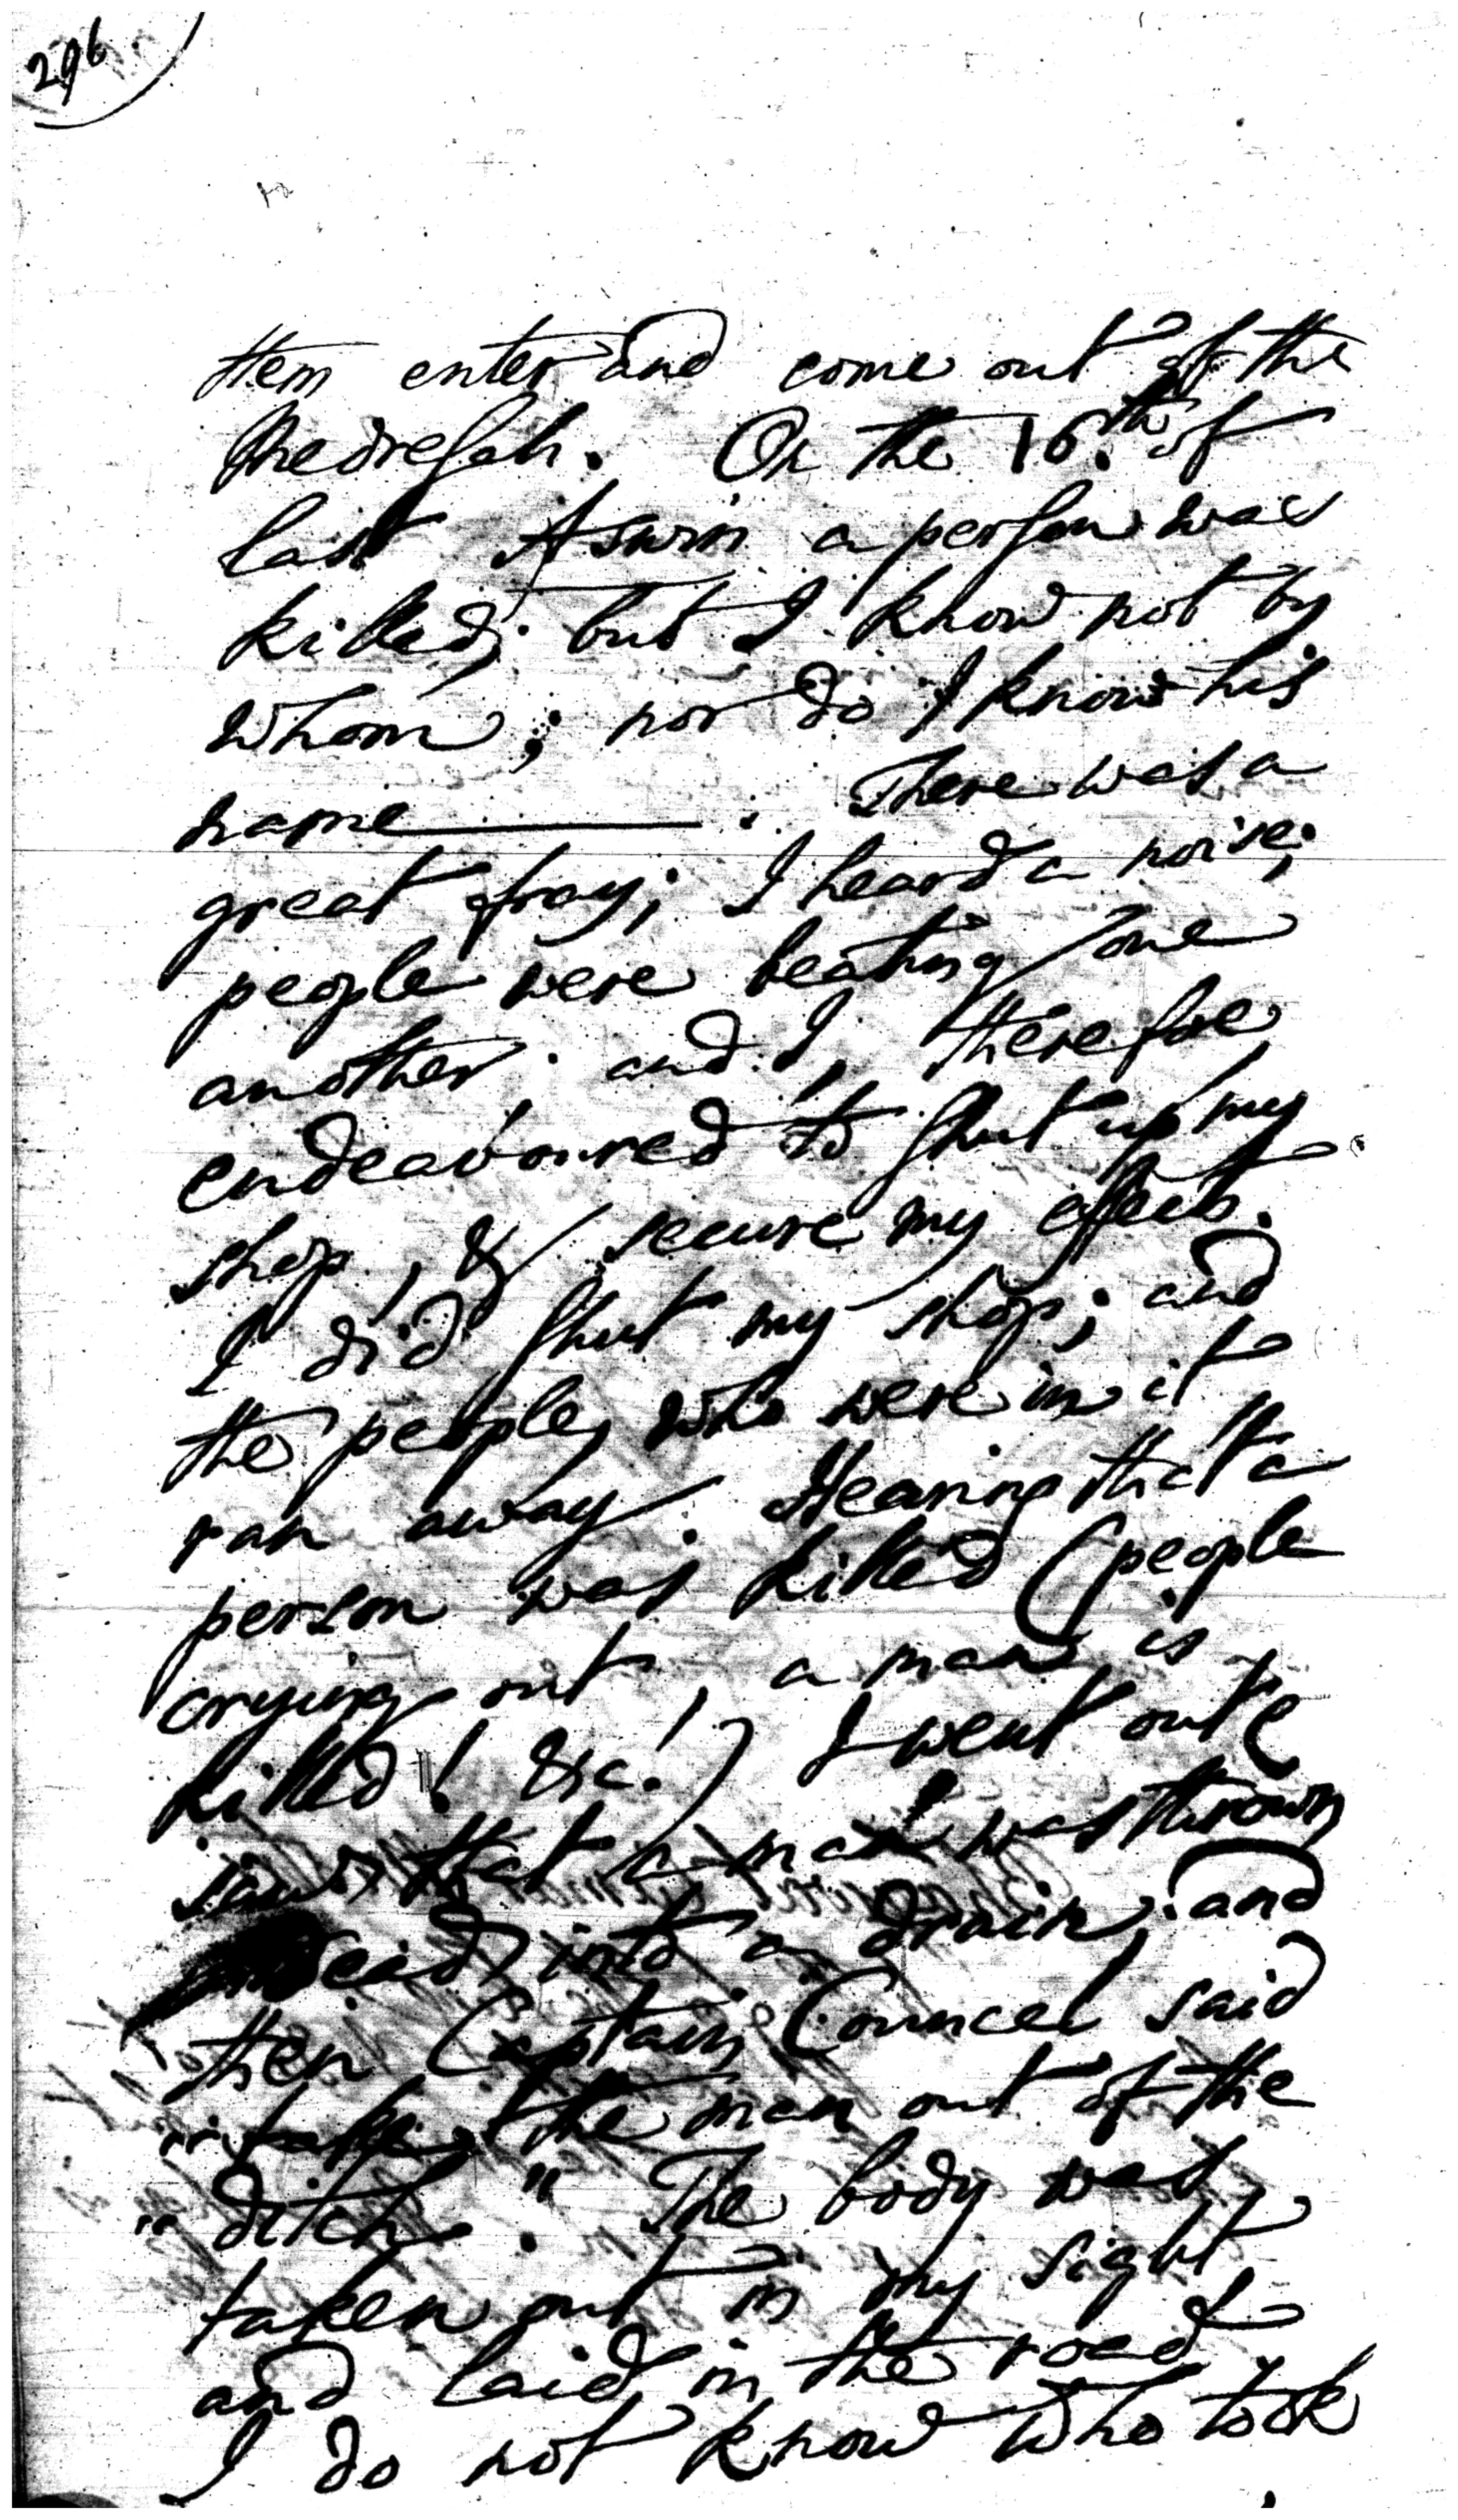 296
them enter and come out of the
Medressah. On the 16.th of
last Aswin a person was
killed; but I know not by
whom; nor do I know his
name ———. There was a
great fray; I heard a noise;
people were beating one
another; and I, therefore,
endeavoured to shut up my
shop, & secure my effects.
I did shut my shop; and
the people, who were in it
ran away. Hearing that a
person was killed (people
crying out, a man is
killed! &c.!) I went out &
saw that a man was thrown
dead into a drain; and
then Captain Councel said
"take the man out of the
"ditch." The body was
taken out in my sight,
and laid in the road.
I do not know who took